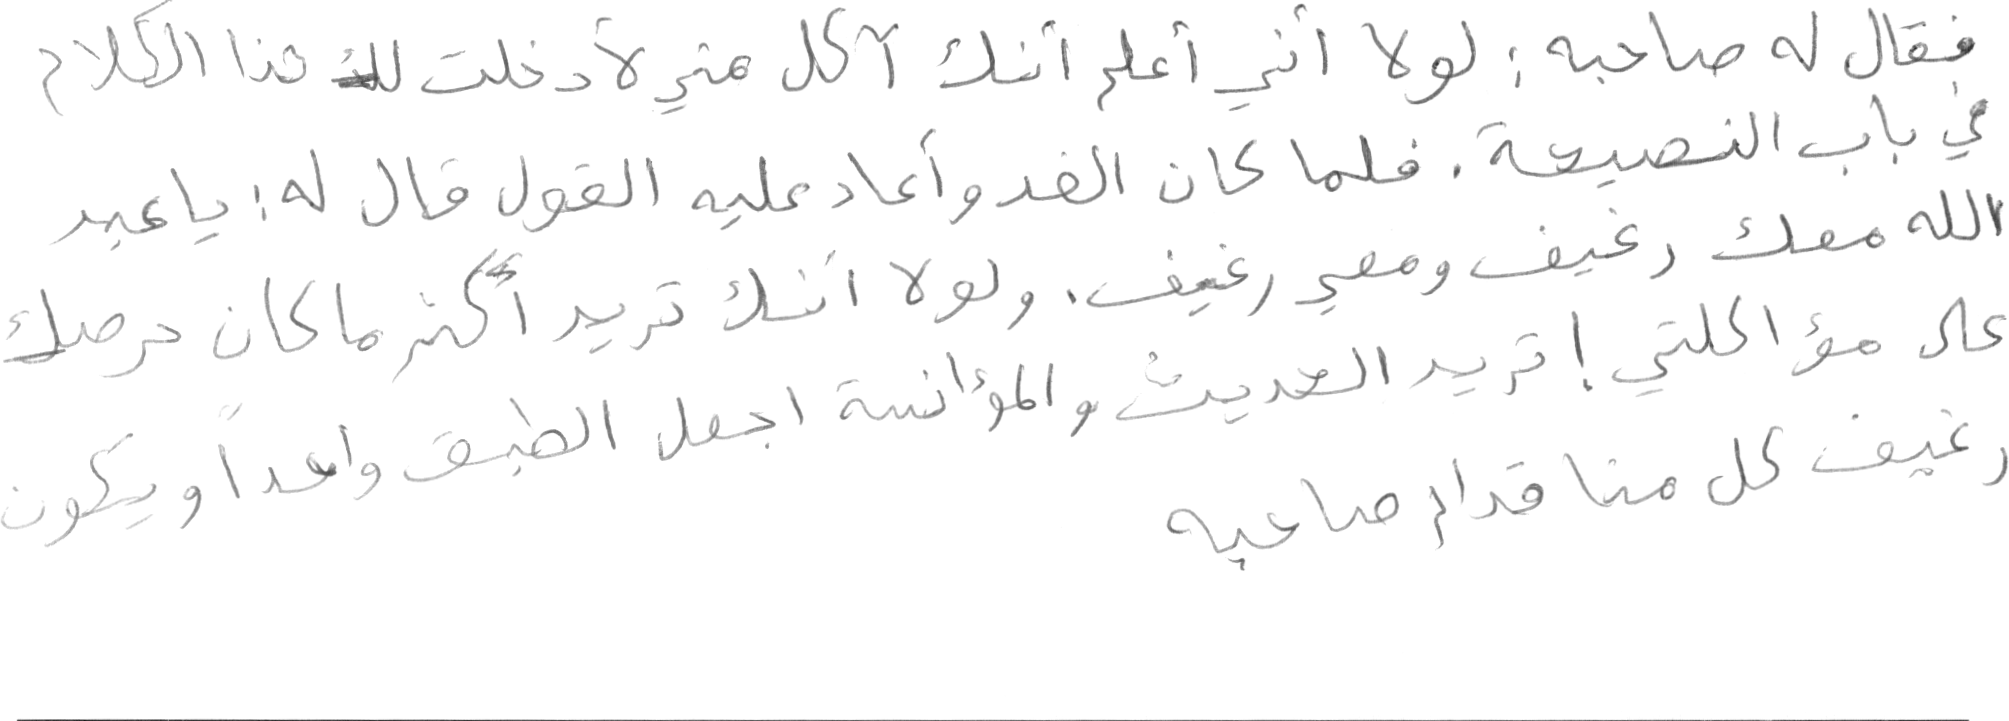 فقال له صاحبه: لولا أني أعلم أنك آكل مني لأدخلت لك هذا الكلام
في باب النصيحة. فلما كان الغد وأعاد عليه القول قال له: يا عبد
الله معك رغيف ومعي رغيف. ولولا أنك تريد أكثر ما كان حرصك
على مؤاكلتي! تريد الحديث والمؤانسة اجعل الطبق واحداً ويكون
رغيف كل منا قدام صاحبه